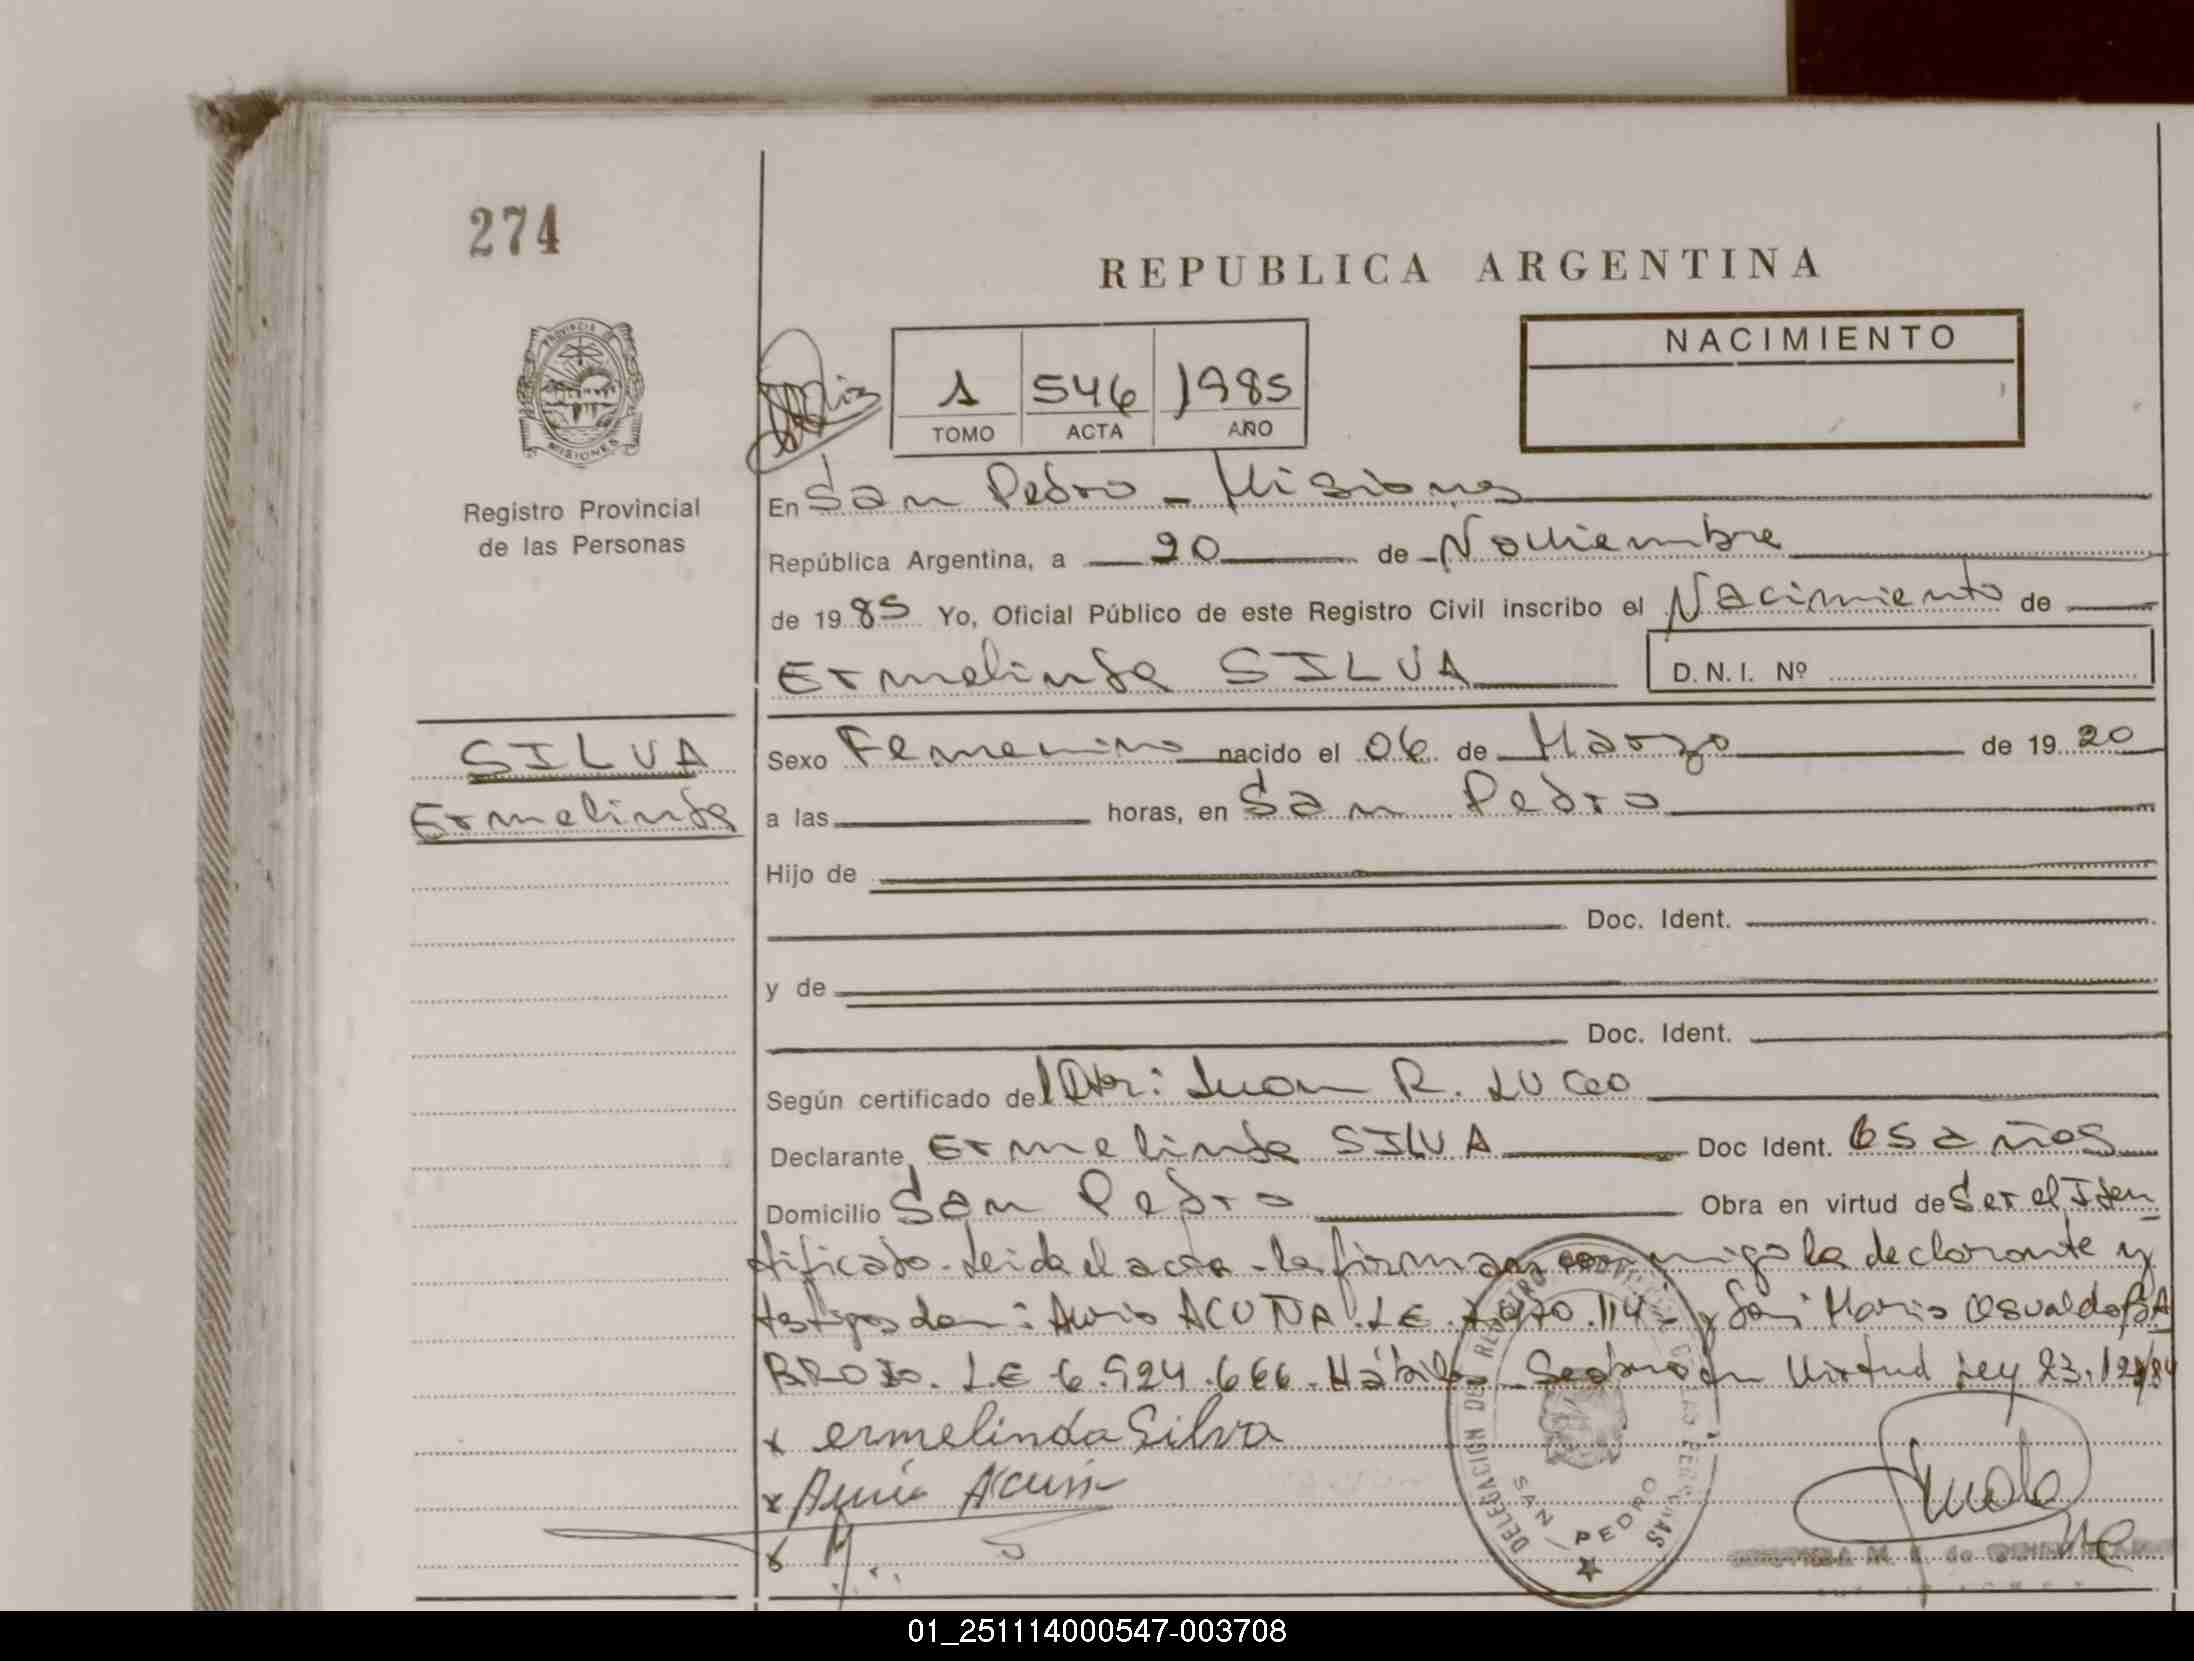 274
REPUBLICA ARGENTINA
NACIMIENTO
PROVINCIA DE
MISIONES
1 546 1985
TOMO ACTA AÑO
Registro Provincial
de las Personas
En San Pedro - Misiones
República Argentina, a 20 de Noviembre
de 1985 Yo, Oficial Público de este Registro Civil inscribo el Nacimiento de
Ermelinda SILVA D.N.I. Nº
SILVA
Ermelinda
Sexo Femenino nacido el 06 de Marzo de 1920
a las horas, en San Pedro
Hijo de
Doc. Ident.
y de
Doc. Ident.
Según certificado del Dr: Juan R. Luceo
Declarante Ermelinda SILVA Doc Ident. 65 años
Domicilio San Pedro Obra en virtud de Ser el Iden
tificado. Leida el acta - la firman conmigo la declarante y
testigos don: ACUÑA L.E. 114 - y Don Mario Osvaldo BA
BROZO. L.E 6.924.666. Hábiles Virtud Ley 23.128/84
x ermelinda Silva
x Acuñ
x
DELEGACION DEL REGISTRO PROVINCIAL DE LAS PERSONAS
SAN PEDRO
01_251114000547-003708